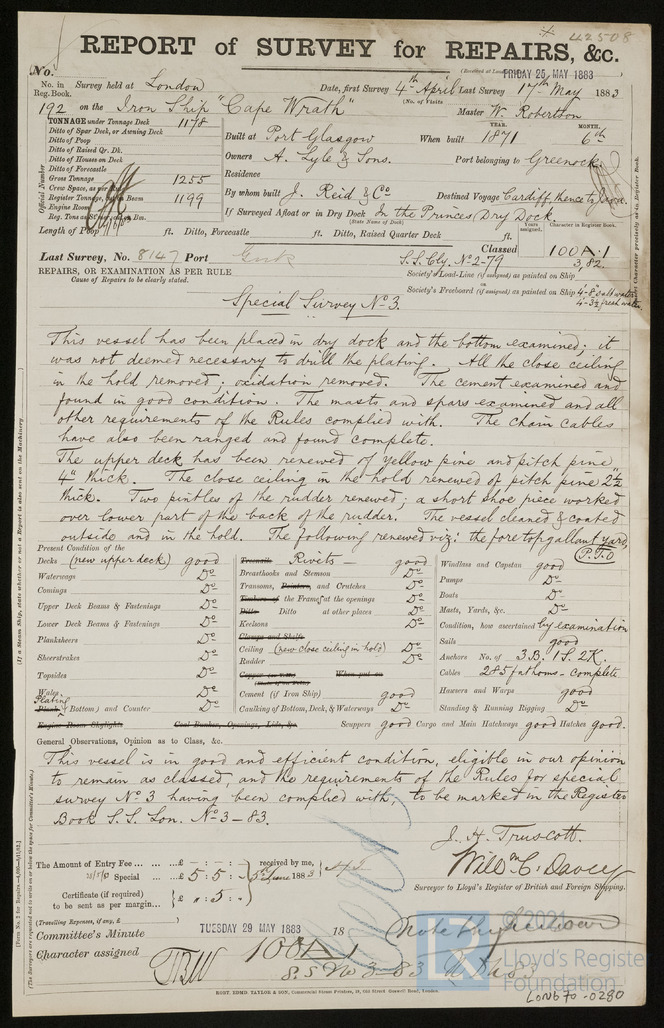 42508
REPORT of SURVEY for REPAIRS, &c.
(Received at London FRIDAY 25 MAY 1883
No.
No. in Reg. Book. Survey held at London Date, first Survey 4th April Last Survey 17th May 1883
(No. of Visits
192 on the Iron Ship "Cape Wrath" Master W. Robertson
TONNAGE under Tonnage Deck 1178
Ditto of Spar Deck, or Awning Deck
Ditto of Poop
Ditto of Raised Qr. Dk.
Ditto of Houses on Deck
Ditto of Forecastle
Gross Tonnage 1255
Crew Space, as per
Register Tonnage, Beam 1199
Engine Room
Reg. Tons as
Official Number
Built at Port Glasgow When built YEAR. 1871 MONTH. 6th
Owners A. Lyle & Sons. Port belonging to Greenock
Residence
By whom built J. Reid & Co Destined Voyage Cardiff, thence to
If Surveyed Afloat or in Dry Dock In the Princes Dry Dock
(State Name of Dock)
Length of Poop ft. Ditto, Forecastle ft. Ditto, Raised Quarter Deck ft.
Years assigned. Character in Register Book.
Classed 100A.1
3,82.
Last Survey, No. 8147 Port Gnk S.S. Cly. No 2-79
REPAIRS, OR EXAMINATION AS PER RULE
Cause of Repairs to be clearly stated.
Society's Load-Line (if assigned) as painted on Ship
or
Society's Freeboard (if assigned) as painted on Ship 4'-8" salt water
4'-3½ fresh water.
Special Survey No 3.
This vessel has been placed in dry dock and the bottom examined; it
was not deemed necessary to drill the plating. All the close ceiling
in the hold removed; oxidation removed. The cement examined and
found in good condition. The masts and spars examined and all
other requirements of the Rules complied with. The chain cables
have also been ranged and found complete.
The upper deck has been renewed of yellow pine and pitch pine
4" thick. The close ceiling in the hold renewed of pitch pine 2½"
thick. Two pintles of the rudder renewed; a short shoe piece worked
over lower part of the back of the rudder. The vessel cleaned & coated
outside and in the hold. The following renewed viz: the fore top gallant yard,
P.T.O
Present Condition of the
Decks (new upper deck) good
Waterways Do
Comings Do
Upper Deck Beams & Fastenings Do
Lower Deck Beams & Fastenings Do
Planksheers Do
Sheerstrakes Do
Topsides Do
Wales Do
Plating
Plank (Bottom) and Counter Do
Engine Room Skylights Coal Bunker, Openings, Lids, &c.
Treenails Rivets — good
Breasthooks and Stemson Do
Transoms, Pointers, and Crutches Do
Timbers of the Frame at the openings Do
Ditto Ditto at other places Do
Keelsons Do
Clamps and Shelfs
Ceiling (new close ceiling in hold) Do
Rudder Do
Copper When put on
Cement (if Iron Ship) good
Caulking of Bottom, Deck, & Waterways Do
Scuppers good Cargo and Main Hatchways good Hatches good.
Windlass and Capstan good
Pumps Do
Boats Do
Masts, Yards, &c. Do
Condition, how ascertained by examination
Sails good
Anchors No. of 3.B. 1S. 2K.
Cables 285 fathoms - complete
Hawsers and Warps good
Standing & Running Rigging Do
General Observations, Opinion as to Class, &c.
This vessel is in good and efficient condition, eligible in our opinion
to remain as classed, and the requirements of the Rules for special
survey No 3 having been complied with, to be marked in the Register
Book S.S. Lon. No 3-83.
J. H. Truscott.
Willm C. Davey
Surveyor to Lloyd's Register of British and Foreign Shipping.
The Amount of Entry Fee ... £ - : - : - received by me,
Special ... £ 5 : 5 : - 5th June 1883
Certificate (if required) to be sent as per margin... £ " : 5 : -
(Travelling Expenses, if any, £
Committee's Minute TUESDAY 29 MAY 1883 18
Character assigned 100A1
S.S No 3-83
(If a Steam Ship, state whether or not a Report is also sent on the Machinery
© 2021
LR
Lloyd's Register
Foundation
LON670-0280
ROBT. EDMD. TAYLOR & SON,